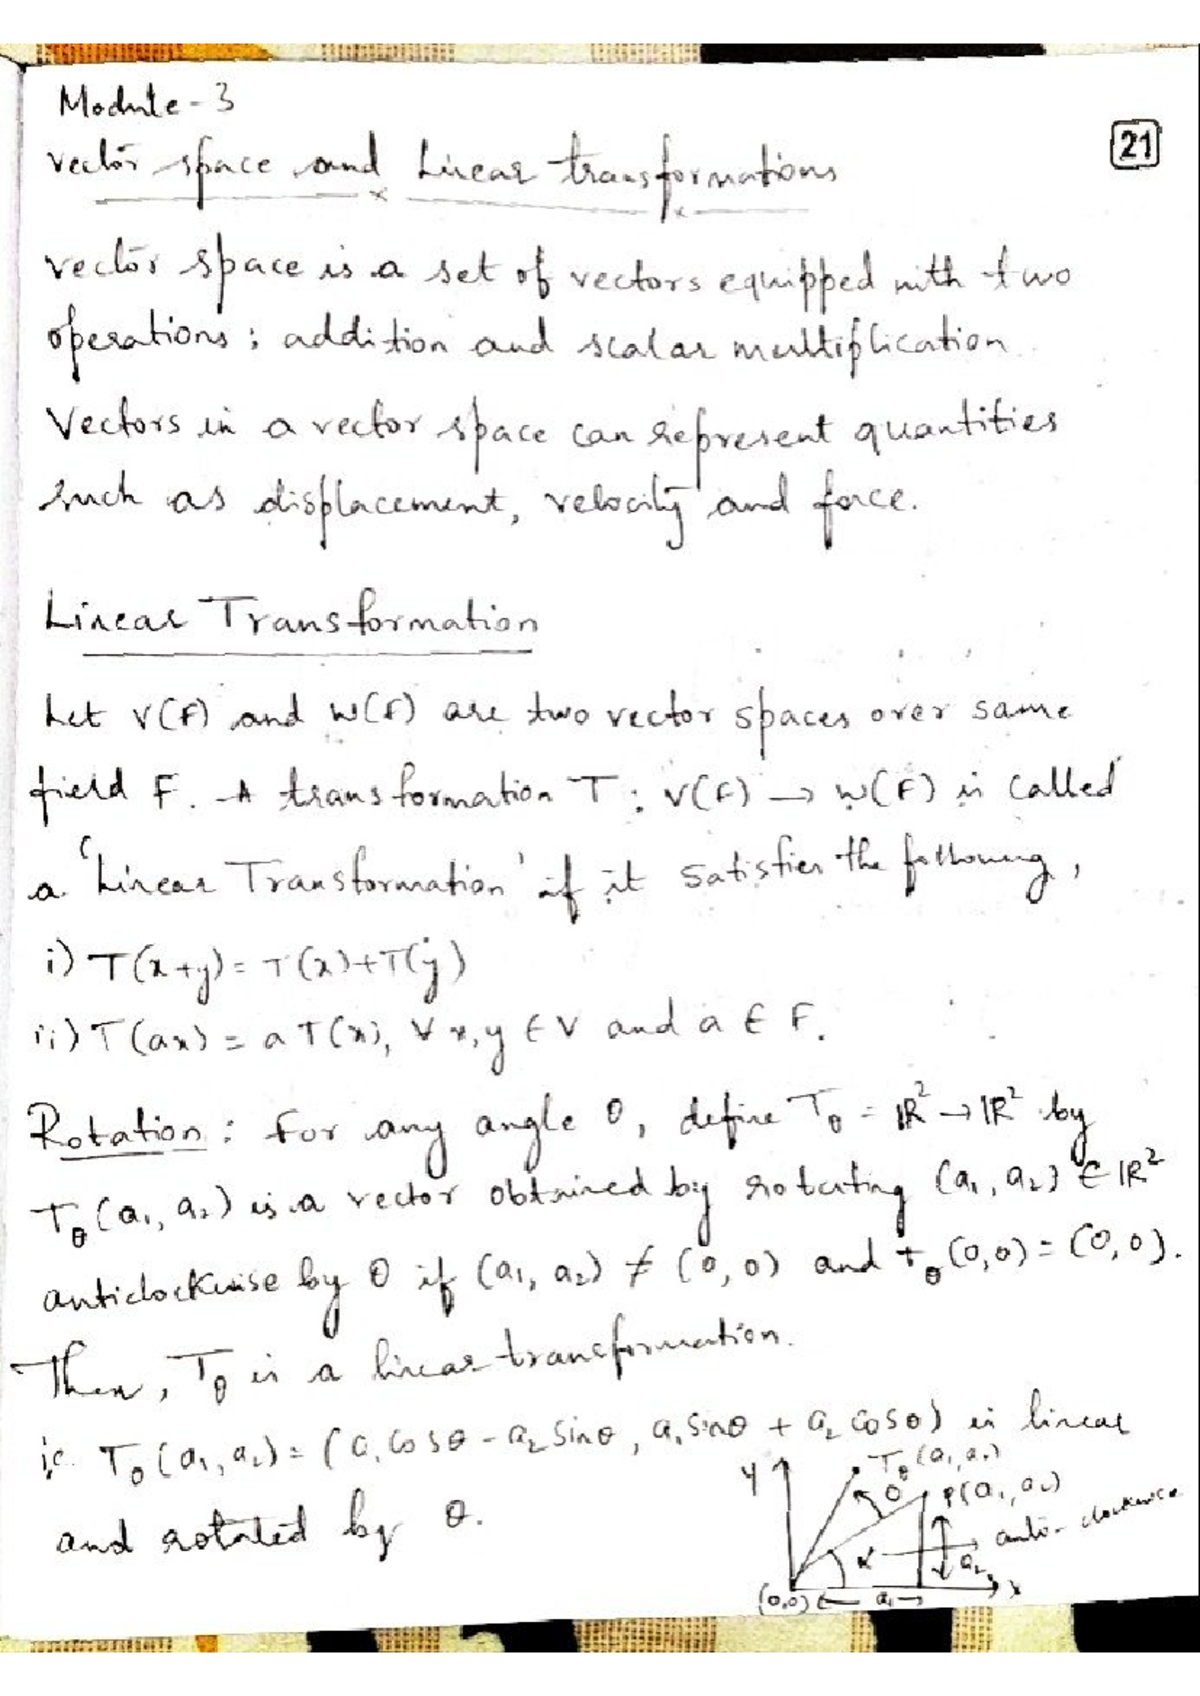 Module-3
21
vector space and Linear transformations
vector space is a set of vectors equipped with two
operations; addition and scalar multiplication.
Vectors in a vector space can represent quantities
such as displacement, velocity and force.
Linear Transformation
Let V(F) and W(F) are two vector spaces over same
field F. A transformation T: V(F) → W(F) is called
a 'Linear Transformation' if it satisfies the following,
i) T(x+y) = T(x)+T(y)
ii) T(ax) = a T(x), ∀ x, y ∈ V and a ∈ F.
Rotation: For any angle θ, define T_θ = ℝ² → ℝ² by
T_θ(a₁, a₂) is a vector obtained by rotating (a₁, a₂) ∈ ℝ²
anticlockwise by θ if (a₁, a₂) ≠ (0, 0) and T_θ(0,0) = (0,0).
Then, T_θ is a linear transformation.
i.e. T_θ(a₁, a₂) = (a₁ cosθ - a₂ sinθ, a₁ sinθ + a₂ cosθ) is linear
and rotated by θ.
y
T_θ(a₁, a₂)
θ
P(a₁, a₂)
anti-clockwise
α
a₂
x
(0,0)
a₁